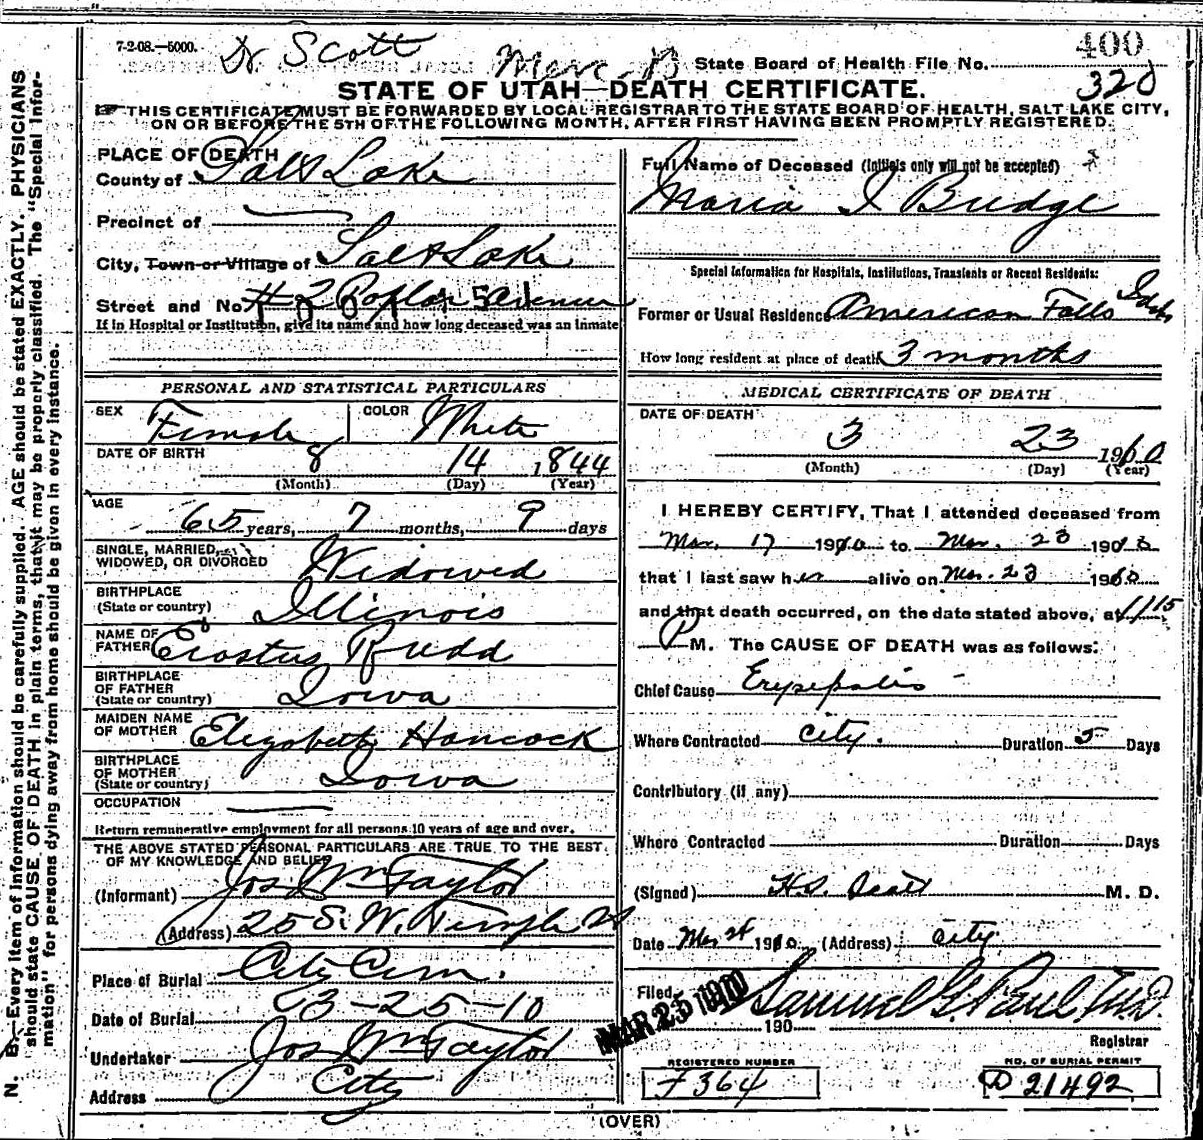 7-2-08.—5000. Dr Scott
State Board of Health File No. 400
320
STATE OF UTAH—DEATH CERTIFICATE.
THIS CERTIFICATE MUST BE FORWARDED BY LOCAL REGISTRAR TO THE STATE BOARD OF HEALTH, SALT LAKE CITY,
ON OR BEFORE THE 5TH OF THE FOLLOWING MONTH, AFTER FIRST HAVING BEEN PROMPTLY REGISTERED.
N. B.—Every item of information should be carefully supplied. AGE should be stated EXACTLY. PHYSICIANS
should state CAUSE OF DEATH in plain terms, that it may be properly classified. The "Special Infor-
mation" for persons dying away from home should be given in every instance.
PLACE OF DEATH
County of Salt Lake
Precinct of
City, Town or Village of Salt Lake
Street and No. # 2 Poplar Avenue
If in Hospital or Institution, give its name and how long deceased was an inmate
PERSONAL AND STATISTICAL PARTICULARS
SEX Female COLOR White
DATE OF BIRTH 8 14 1844
(Month) (Day) (Year)
AGE
65 years, 7 months, 9 days
SINGLE, MARRIED,
WIDOWED, OR DIVORCED Widowed
BIRTHPLACE
(State or country) Illinois
NAME OF
FATHER Erastus Rudd
BIRTHPLACE
OF FATHER
(State or country) Iowa
MAIDEN NAME
OF MOTHER Elizabeth Hancock
BIRTHPLACE
OF MOTHER
(State or country) Iowa
OCCUPATION
Return remunerative employment for all persons 10 years of age and over.
THE ABOVE STATED PERSONAL PARTICULARS ARE TRUE TO THE BEST
OF MY KNOWLEDGE AND BELIEF
(Informant) Jos Wm Taylor
(Address) 25 S. W. Temple St
Place of Burial City Cem.
Date of Burial 3-25-10
Undertaker Jos Wm Taylor
Address City
Full Name of Deceased (Initials only will not be accepted)
Maria I Budge
Special Information for Hospitals, Institutions, Transients or Recent Residents:
Former or Usual Residence American Falls Idah
How long resident at place of death 3 months
MEDICAL CERTIFICATE OF DEATH
DATE OF DEATH
3 23 1910
(Month) (Day) (Year)
I HEREBY CERTIFY, That I attended deceased from
Mar. 17 1910 to Mar. 23 1910
that I last saw her alive on Mar. 23 1910
and that death occurred, on the date stated above, at 11 15
P M. The CAUSE OF DEATH was as follows:
Chief Cause Erysipelas
Where Contracted City. Duration 5 Days
Contributory (if any)
Where Contracted Duration Days
(Signed) H.S. Scott M. D.
Date Mar 24 1910 (Address) City
Filed MAR 25 1910 190 Samuel G. Paul, M.D.
Registrar
REGISTERED NUMBER
F 364
NO. OF BURIAL PERMIT
D 21492
(OVER)